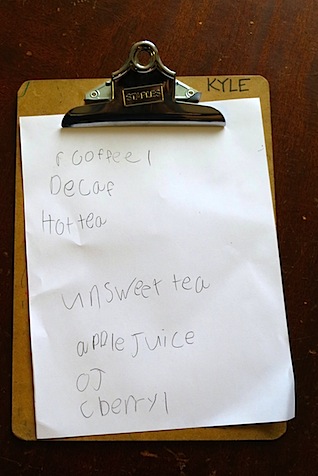 STAPLES
KYLE
r coffee1
Decaf
Hot tea
unsweet tea
apple Juice
OJ
cberry1